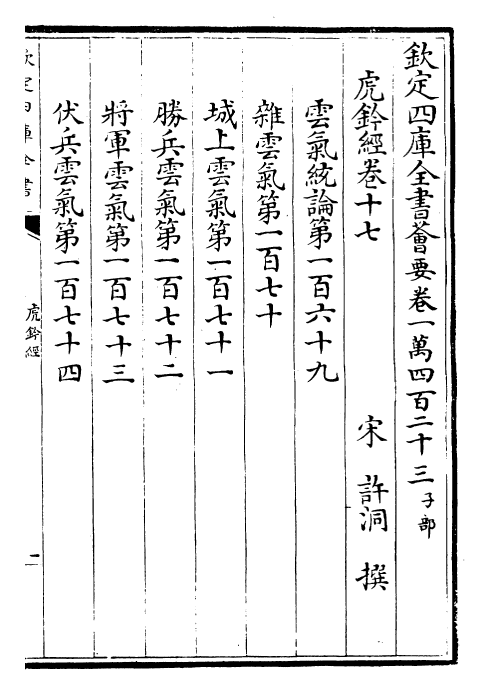 欽定四庫全書薈要卷一萬四百二十三子部
虎鈐經卷十七　宋　許洞　撰
雲氣統論第一百六十九
雜雲氣第一百七十
城上雲氣第一百七十一
勝兵雲氣第一百七十二
將軍雲氣第一百七十三
伏兵雲氣第一百七十四
欽定四庫全書
虎鈐經